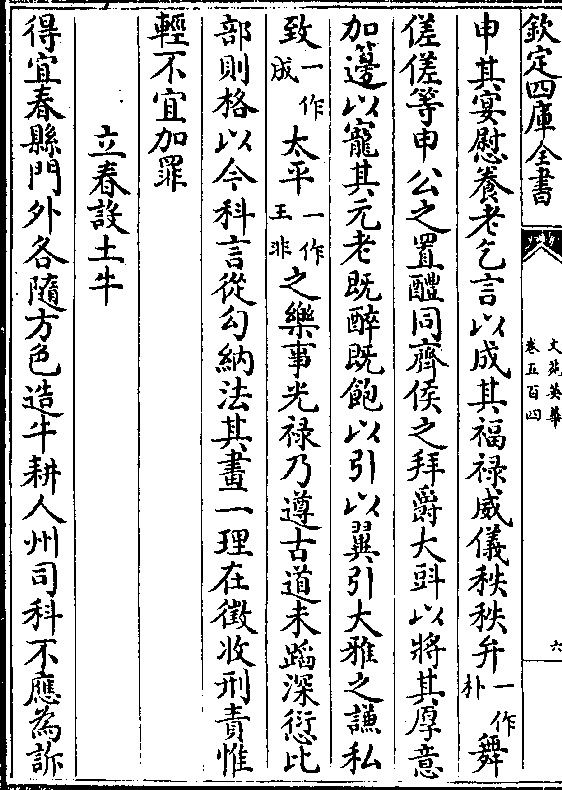 欽定四庫全書
文苑英華
卷五百四
六
申其宴慰養老乞言以成其福禄威儀秩秩弁一作朴舞
傞傞等申公之置醴同齊侯之拜爵大㪷以將其厚意
加籩以寵其元老既醉既飽以引以翼引大雅之謙私
致一作成太平一作王非之樂事光禄乃遵古道未蹈深愆比
部則格以今科言從勾納法其畫一理在徵收刑責惟
輕不宜加罪
立春設土牛
得宜春縣門外各隨方色造牛耕人州司科不應為訴